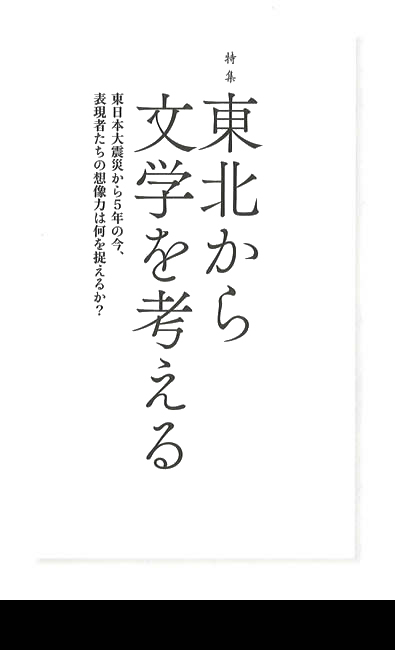 特集
東北から
文学を考える
東日本大震災から5年の今、
表現者たちの想像力は何を捉えるか？